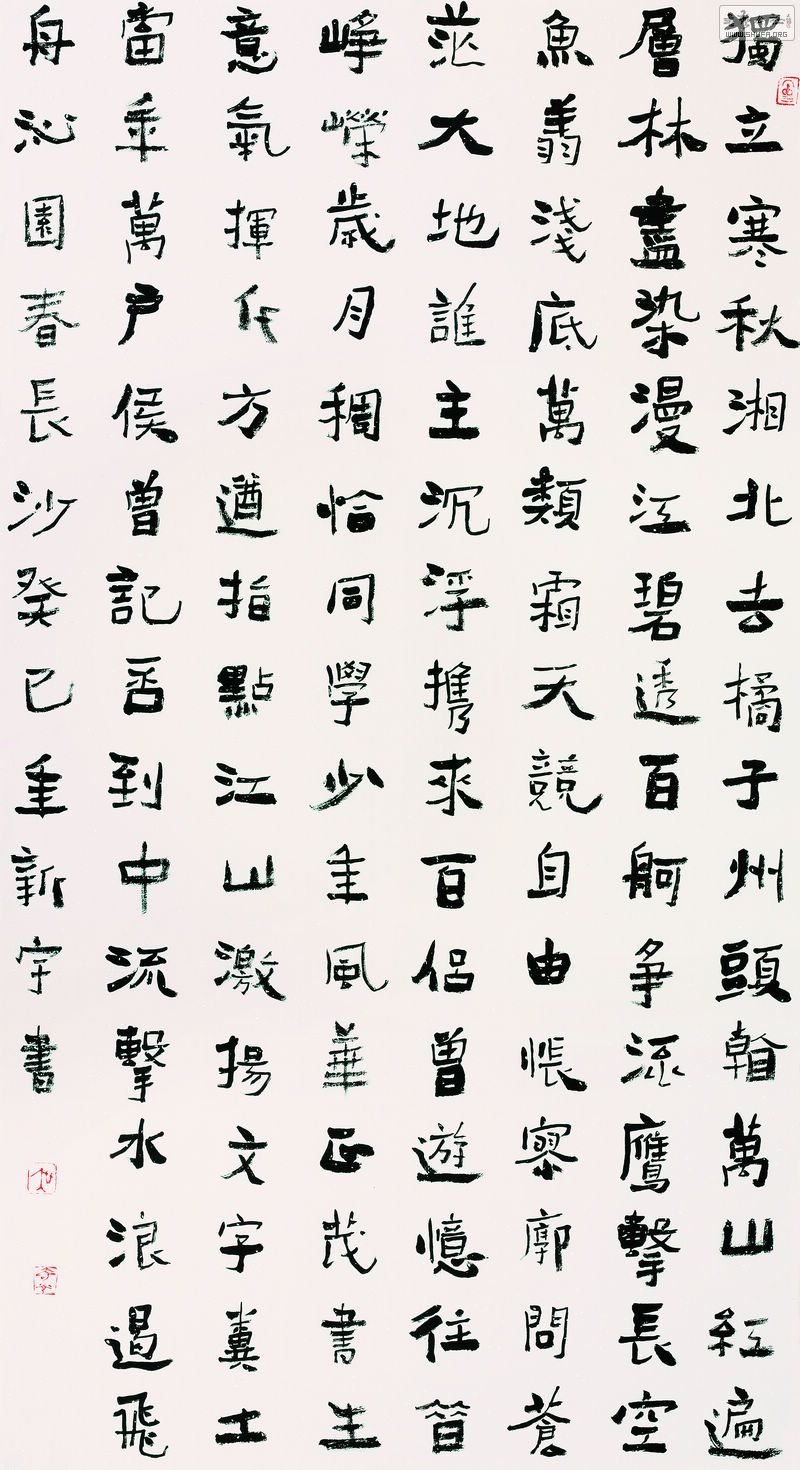 獨立寒秋湘北去橘子州頭看萬山紅遍
層林盡染漫江碧透百舸爭流鷹擊長空
魚翔淺底萬類霜天競自由悵寥廓問蒼
茫大地誰主沉浮攜來百侶曾遊憶往昔
崢嶸歲月稠恰同學少年風華正茂書生
意氣揮斥方遒指點江山激揚文字糞土
當年萬戶侯曾記否到中流擊水浪遏飛
舟沁園春長沙癸巳年新宇書
WWW.SHUFA.ORG